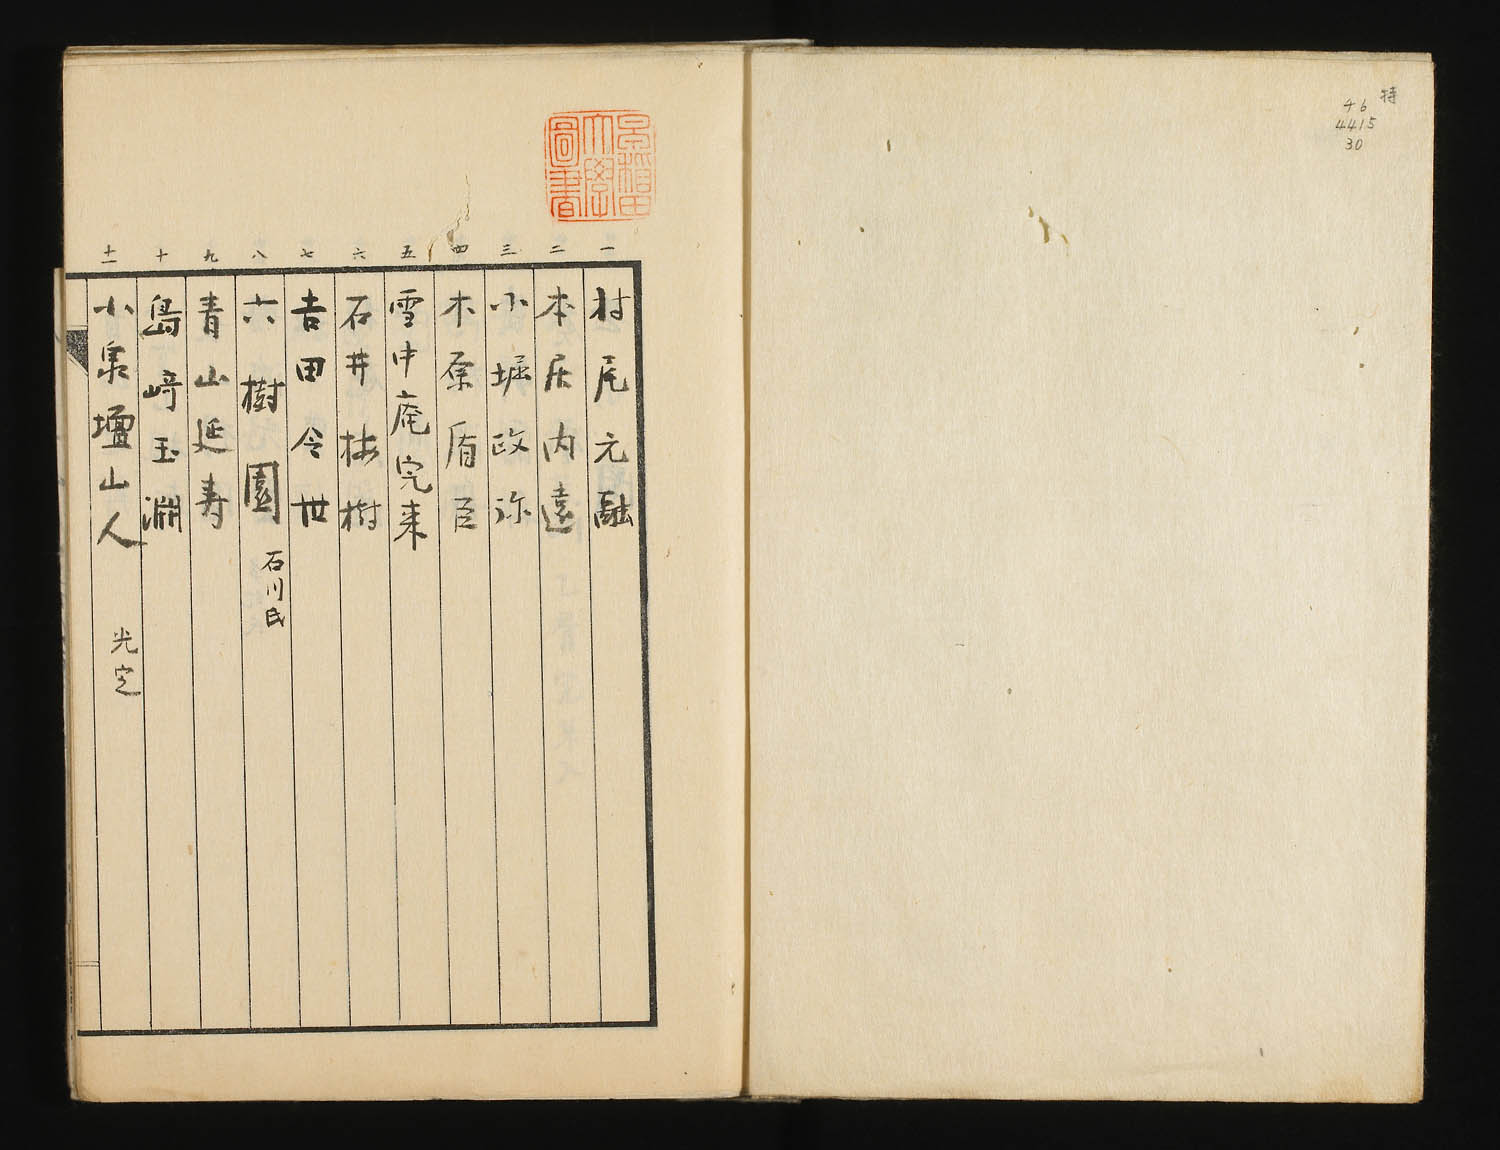 特
46
4415
30
早稲田大學圖書
一 村尾元融
二 本居内遠
三 小堀政弥
四 木原盾臣
五 雪中庵完来
六 石井梅樹
七 吉田令世
八 六樹園 石川氏
九 青山延寿
十 島﨑玉淵
十一 小泉壇山人 光定